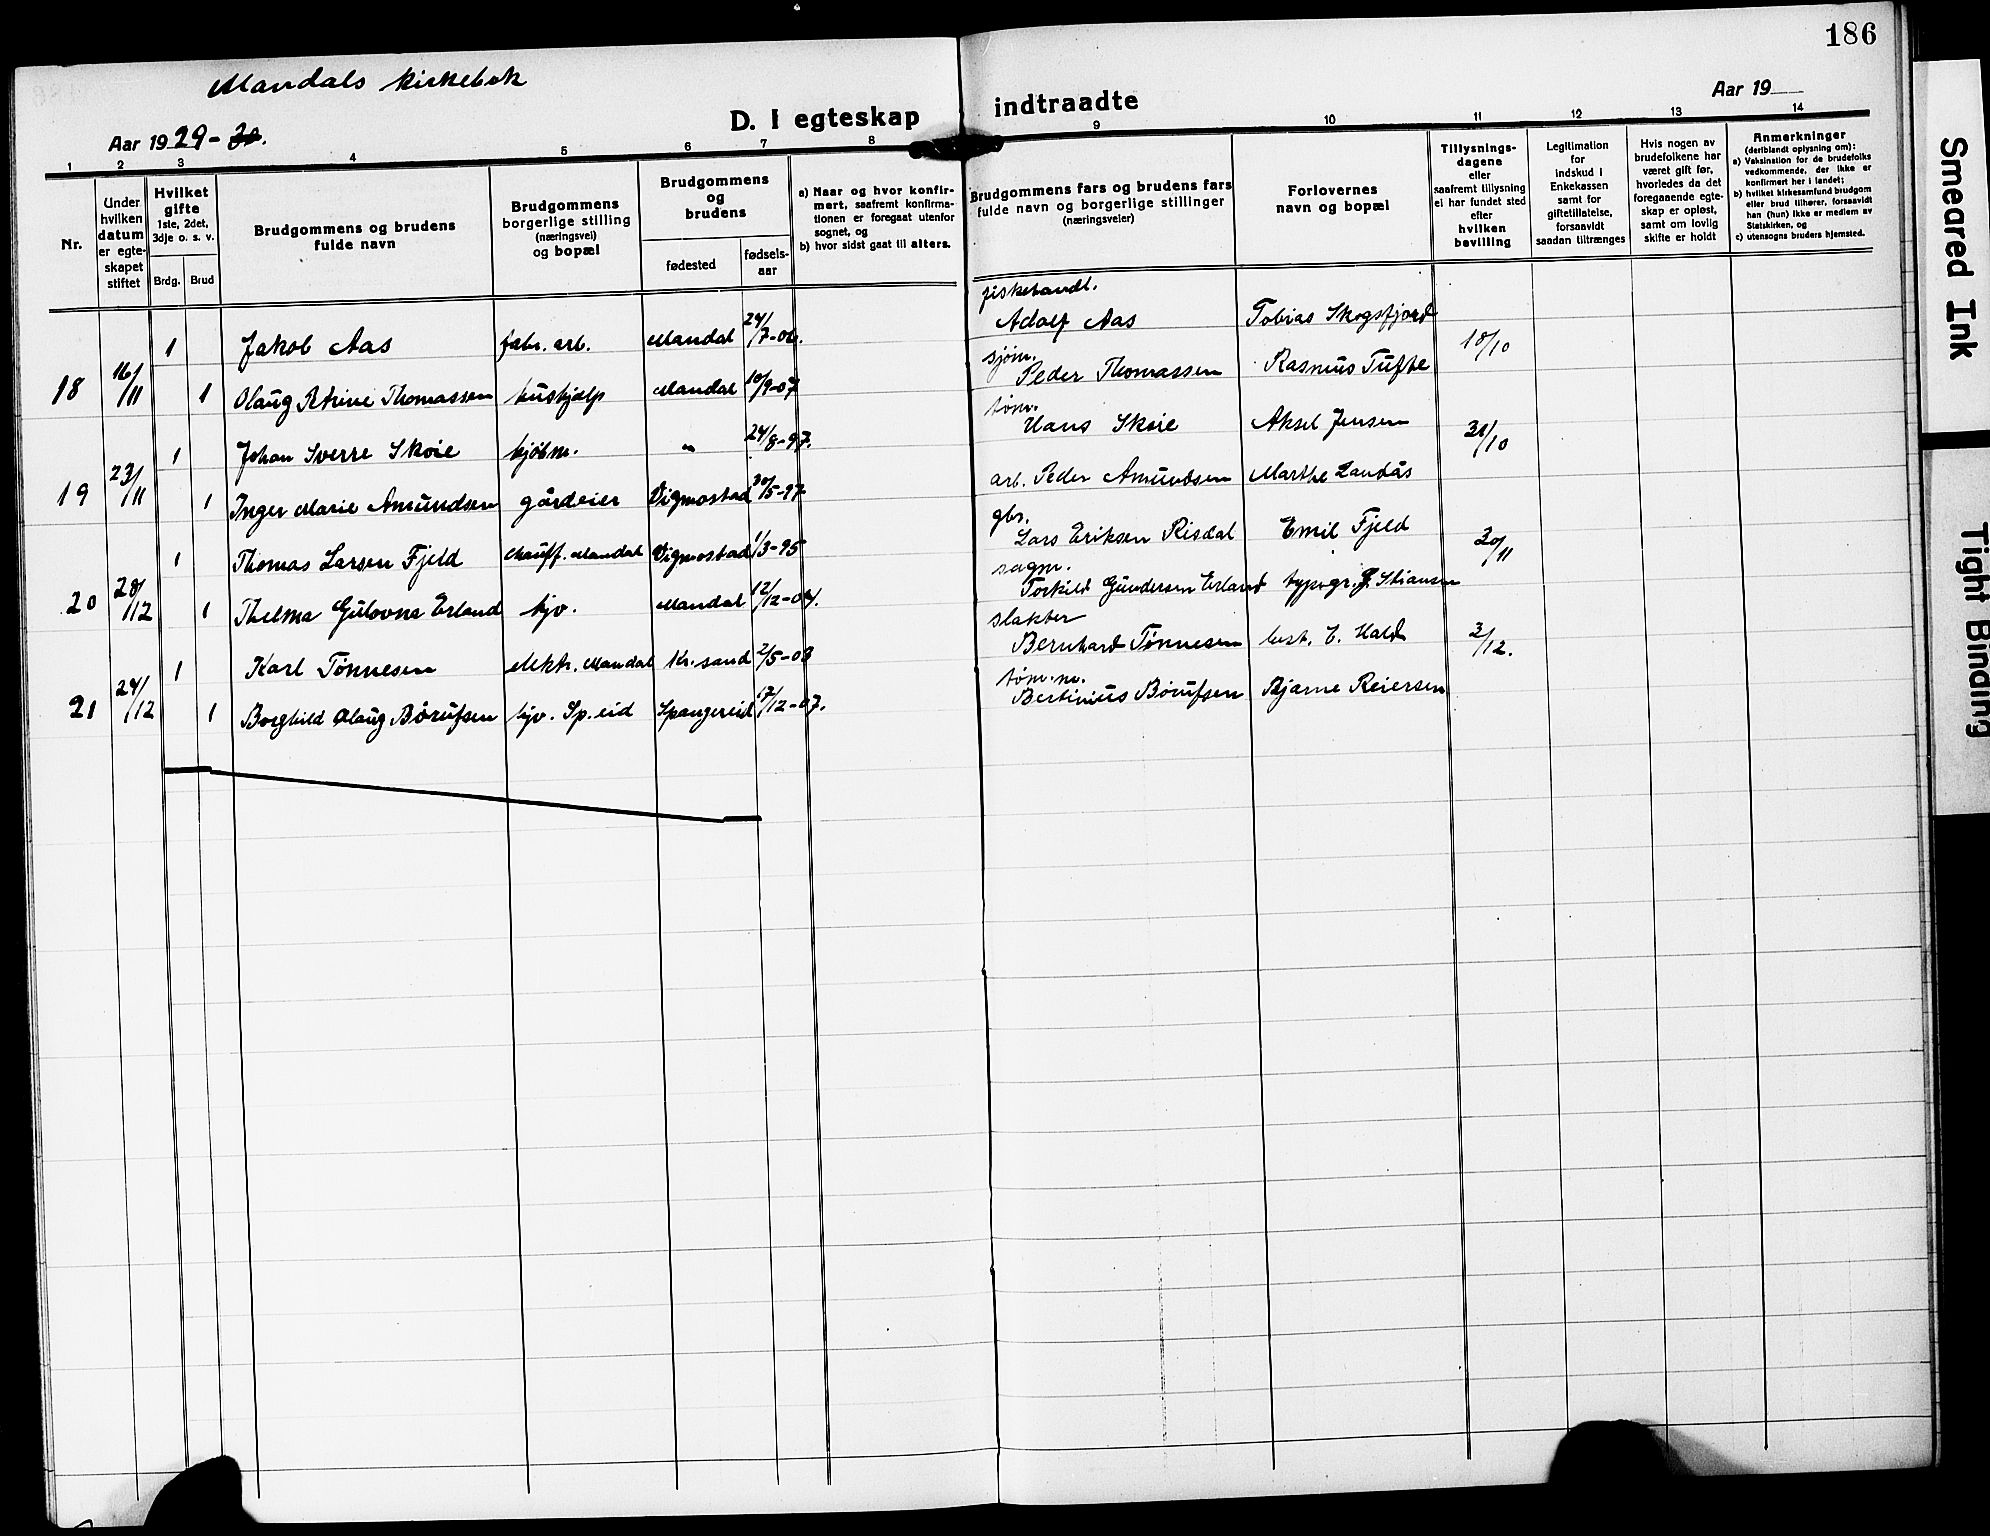 186
Mandals kirkebok
Aar 1929-30.
D. I egteskap indtraadte
Aar 19
1 2 3 4 5 6 7 8 9 10 11 12 13 14
Nr.
Under hvilken datum er egteskapet stiftet
Hvilket gifte 1ste, 2det, 3dje o. s. v.
Brdg. Brud
Brudgommens og brudens fulde navn
Brudgommens borgerlige stilling (næringsvei) og bopæl
Brudgommens og brudens
fødested
fødsels-aar
a) Naar og hvor konfirmert, saafremt konfirmationen er foregaat utenfor sognet, og
b) hvor sidst gaat til alters.
Brudgommens fars og brudens fars fulde navn og borgerlige stillinger (næringsveier)
Forlovernes navn og bopæl
Tillysningsdagene eller saafremt tillysning ei har fundet sted efter hvilken bevilling
Legitimation for indskud i Enkekassen samt for giftetillatelse, forsaavidt saadan tiltrænges
Hvis nogen av brudefolkene har været gift før, hvorledes da det foregaaende egteskap er opløst, samt om lovlig skifte er holdt
Anmerkninger (deriblandt oplysning om):
a) Vaksination for de brudefolks vedkommende, der ikke er konfirmert her i landet;
b) hvilket kirkesamfund brudgom eller brud tilhører, forsaavidt han (hun) ikke er medlem av Statskirken, og
c) utensogns bruders hjemsted.
1 Jakob Aas fabr. arb. Mandal 24/7-06. fiskehandl. Adolf Aas Tobias Skogsfjord
18 16/11 1 Olaug Petrine Thomassen hushjælp Mandal 10/9-07 sjøm. Peder Thomassen Rasmus Tufte 10/10
1 Johan Sverre Skøie kjøbm. " 24/8-97. tøm. Hans Skøie Aksel Jensen
19 23/11 1 Inger Marie Amundsen gårdeier Vigmostad 30/5-97 arb. Peder Amundsen Marthe Landås 31/10
1 Thomas Larsen Fjeld chauff. Mandal Vigmostad 1/3-95 gbr. Lars Eriksen Risdal Emil Fjeld
20 28/12 1 Thelma Gulovna Erland hjv. Mandal 12/12-04. sagm. Torkild Gundersen Erland typogr. J. Stiansen 20/11
1 Karl Tønnesen elektr. Mandal Kr.sand 2/5-03 slakter Bernhard Tønnesen best. E. Hald
21 24/12 1 Borghild Olaug Børufsen hjv. Sp.eid Spangereid 17/12-07. tøm.m. Bertinius Børufsen Bjarne Reiersen 3/12.
Smeared Ink
Tight Binding